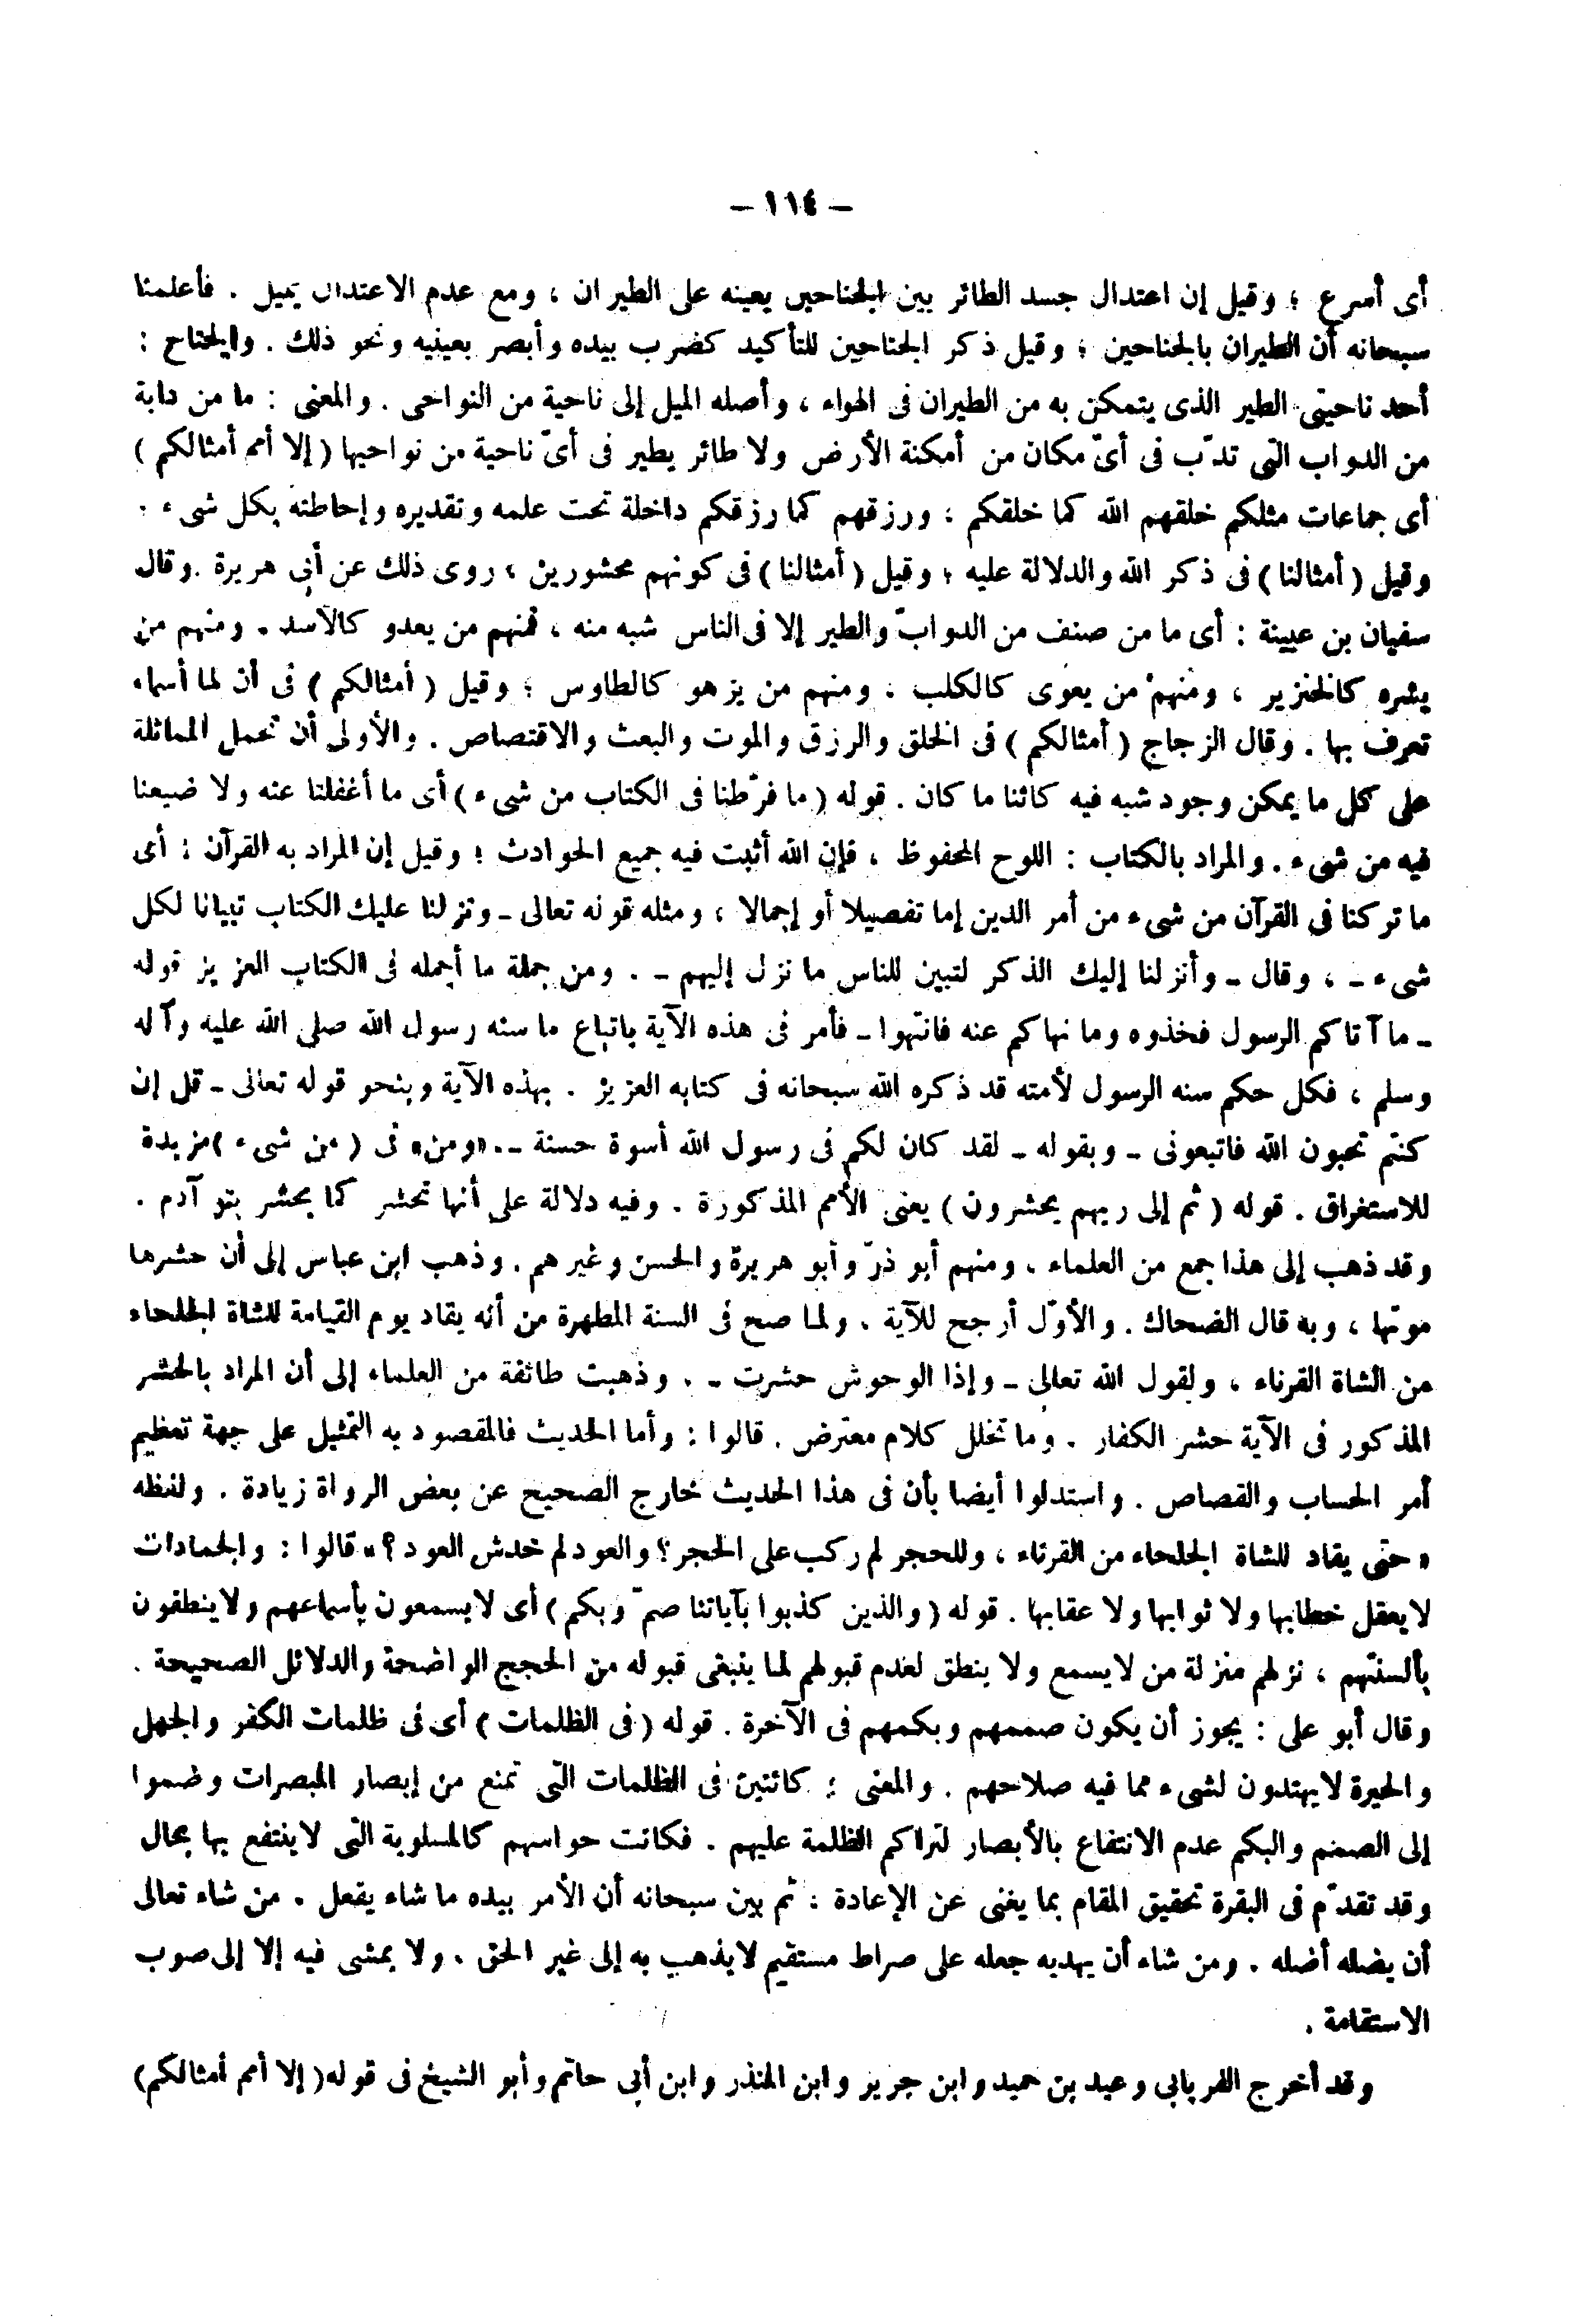 – ١١٤ –
أى أسرع ؛ وقيل إن اعتدال جسد الطائر بين الجناحين يعينه على الطيران ، ومع عدم الاعتدال يميل . فأعلمنا
سبحانه أن الطيران بالجناحين ؛ وقيل ذكر الجناحين للتأكيد كضرب بيده وأبصر بعينيه ونحو ذلك . والجناح :
أحد ناحيتى الطير الذى يتمكن به من الطيران فى الهواء ، وأصله الميل إلى ناحية من النواحى . والمعنى : ما من دابة
من الدواب التى تدبّ فى أىّ مكان من أمكنة الأرض ولا طائر يطير فى أىّ ناحية من نواحيها ( إلا أمم أمثالكم )
أى جماعات مثلكم خلقهم الله كما خلقكم ، ورزقهم كما رزقكم داخلة تحت علمه وتقديره وإحاطته بكل شىء .
وقيل ( أمثالنا ) فى ذكر الله والدلالة عليه ؛ وقيل ( أمثالنا ) فى كونهم محشورين ، روى ذلك عن أبى هريرة . وقال
سفيان بن عيينة : أى ما من صنف من الدوابّ والطير إلا فى الناس شبه منه ، فمنهم من يعدو كالأسد ، ومنهم من
يشره كالخنزير ، ومنهم من يعوى كالكلب ، ومنهم من يزهو كالطاوس ؛ وقيل ( أمثالكم ) فى أن لها أسماء
تعرف بها . وقال الزجاج ( أمثالكم ) فى الخلق والرزق والموت والبعث والاقتصاص . والأولى أن تحمل المماثلة
على كل ما يمكن وجود شبه فيه كائنا ما كان . قوله ( ما فرّطنا فى الكتاب من شىء ) أى ما أغفلنا عنه ولا ضيعنا
فيه من شىء . والمراد بالكتاب : اللوح المحفوظ ، فإن الله أثبت فيه جميع الحوادث ؛ وقيل إن المراد به القرآن : أى
ما تركنا فى القرآن من شىء من أمر الدين إما تفصيلا أو إجمالا ، ومثله قوله تعالى ـ ونزلنا عليك الكتاب تبيانا لكل
شىء ـ ، وقال ـ وأنزلنا إليك الذكر لتبين للناس ما نزل إليهم ـ . ومن جملة ما أجمله فى الكتاب العزيز قوله
ـ ما آتاكم الرسول فخذوه وما نهاكم عنه فانتهوا ـ فأمر فى هذه الآية باتباع ما سنه رسول الله صلى الله عليه وآله
وسلم ، فكل حكم سنه الرسول لأمته قد ذكره الله سبحانه فى كتابه العزيز . بهذه الآية وبنحو قوله تعالى ـ قل إن
كنتم تحبون الله فاتبعونى ـ وبقوله ـ لقد كان لكم فى رسول الله أسوة حسنة ـ . «ومن» فى ( من شىء ) مزيدة
للاستغراق . قوله ( ثم إلى ربهم يحشرون ) يعنى الأمم المذكورة . وفيه دلالة على أنها تحشر كما يحشر بنو آدم .
وقد ذهب إلى هذا جمع من العلماء ، ومنهم أبو ذرّ وأبو هريرة والحسن وغيرهم . وذهب ابن عباس إلى أن حشرها
موتها ، وبه قال الضحاك . والأوّل أرجح للآية ، ولما صح فى السنة المطهرة من أنه يقاد يوم القيامة للشاة الجلحاء
من الشاة القرناء ، ولقول الله تعالى ـ وإذا الوحوش حشرت ـ . وذهبت طائفة من العلماء إلى أن المراد بالحشر
المذكور فى الآية حشر الكفار . وما تخلل كلام معترض . قالوا : وأما الحديث فالمقصود به التمثيل على جهة تعظيم
أمر الحساب والقصاص . واستدلوا أيضا بأن فى هذا الحديث خارج الصحيح عن بعض الرواة زيادة . ولفظه
« حتى يقاد للشاة الجلحاء من القرناء ، وللحجر لم ركب على الحجر ؟ والعود لم خدش العود ؟ » قالوا : والجمادات
لا يعقل خطابها ولا ثوابها ولا عقابها . قوله ( والذين كذبوا بآياتنا صمّ وبكم ) أى لا يسمعون بأسماعهم ولا ينطقون
بألسنتهم ، نزلهم منزلة من لا يسمع ولا ينطق لعدم قبولهم لما ينبغى قبوله من الحجج الواضحة والدلائل الصحيحة .
وقال أبو على : يجوز أن يكون صممهم وبكمهم فى الآخرة . قوله ( فى الظلمات ) أى فى ظلمات الكفر والجهل
والحيرة لا يهتدون لشىء مما فيه صلاحهم . والمعنى : كائنين فى الظلمات التى تمنع من إبصار المبصرات وضموا
إلى الصمم والبكم عدم الانتفاع بالأبصار لتراكم الظلمة عليهم . فكانت حواسهم كالمسلوبة التى لا ينتفع بها بحال
وقد تقدّم فى البقرة تحقيق المقام بما يغنى عن الإعادة : ثم بين سبحانه أن الأمر بيده ما شاء يفعل . من شاء تعالى
أن يضله أضله . ومن شاء أن يهديه جعله على صراط مستقيم لا يذهب به إلى غير الحق ، ولا يمشى فيه إلا إلى صوب
الاستقامة .
وقد أخرج الفريابى وعبد بن حميد وابن جرير وابن المنذر وابن أبى حاتم وأبو الشيخ فى قوله ( إلا أمم أمثالكم )